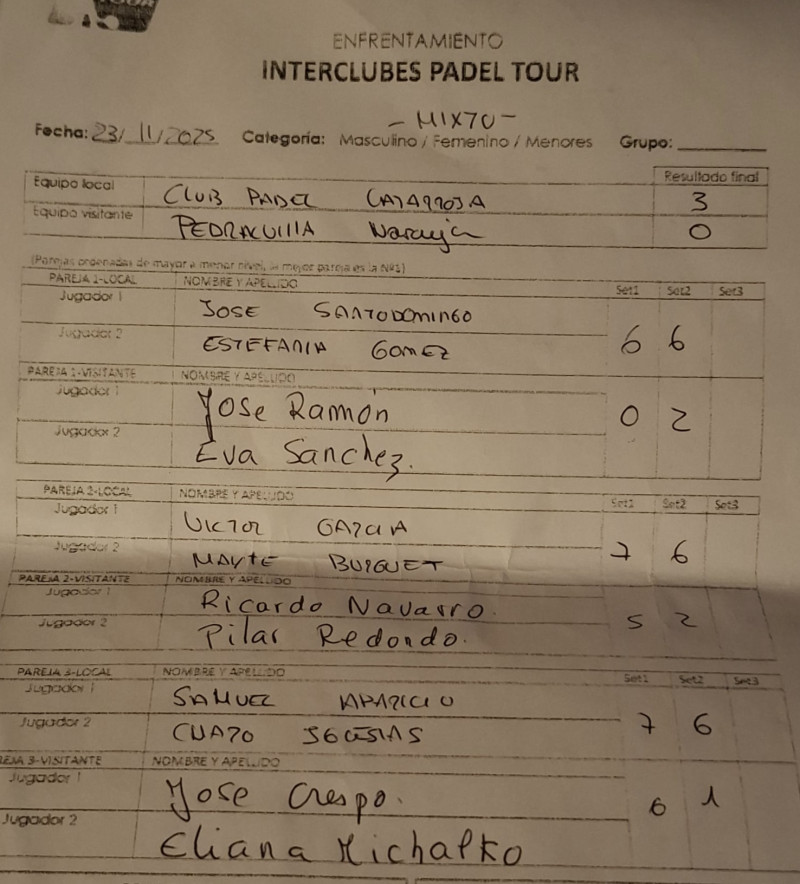 ENFRENTAMIENTO
INTERCLUBES PADEL TOUR
- MIXTO -
Fecha: 23/11/2025 Categoría: Masculino / Femenino / Menores Grupo:
Resultado final
Equipo local CLUB PADEL CATARROJA 3
Equipo visitante PEDRAGUILLA Naranja 0
(Parejas ordenadas de mayor a menor nivel, la mejor pareja es la Nº1)
PAREJA 1-LOCAL NOMBRE Y APELLIDO Set1 Set2 Set3
Jugador 1 JOSE SANTODOMINGO
Jugador 2 ESTEFANIA GOMEZ 6 6
PAREJA 1-VISITANTE NOMBRE Y APELLIDO
Jugador 1 Jose Ramon 0 2
Jugador 2 Eva Sanchez.
PAREJA 2-LOCAL NOMBRE Y APELLIDO Set1 Set2 Set3
Jugador 1 VICTOR GARCIA
Jugador 2 MAYTE BURGUET 7 6
PAREJA 2-VISITANTE NOMBRE Y APELLIDO
Jugador 1 Ricardo Navarro. 5 2
Jugador 2 Pilar Redondo.
PAREJA 3-LOCAL NOMBRE Y APELLIDO Set1 Set2 Set3
Jugador 1 SAMUEL APARICIO
Jugador 2 CHARO IGLESIAS 7 6
REJA 3-VISITANTE NOMBRE Y APELLIDO
Jugador 1 Jose Crespo. 6 1
Jugador 2 Eliana Michalko